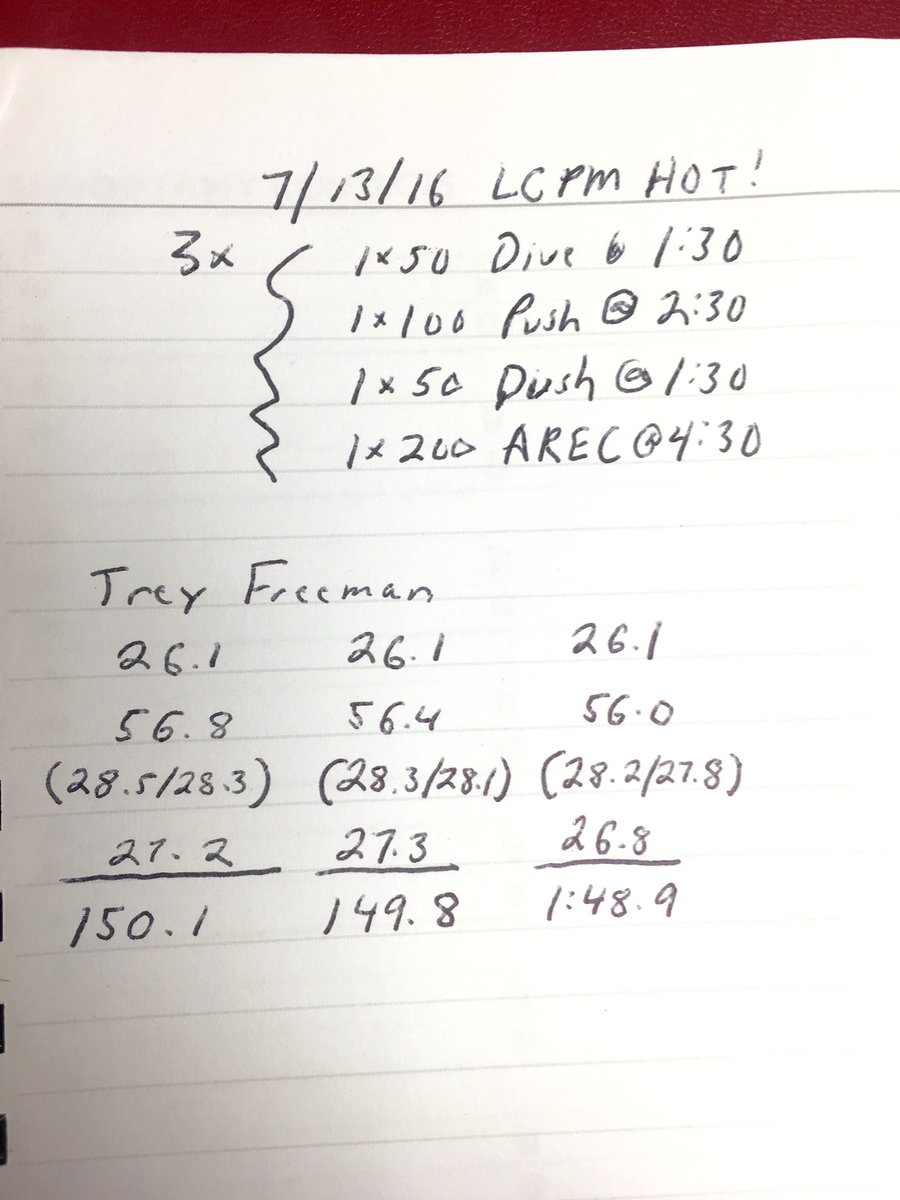 7/13/16 LCPM HOT!
3x { 1x50 Dive @ 1:30
1x100 Push @ 2:30
1x50 Push @ 1:30
1x200 AREC @ 4:30
Trey Freeman
26.1 26.1 26.1
56.8 56.4 56.0
(28.5/28.3) (28.3/28.1) (28.2/27.8)
27.2 27.3 26.8
150.1 149.8 1:48.9